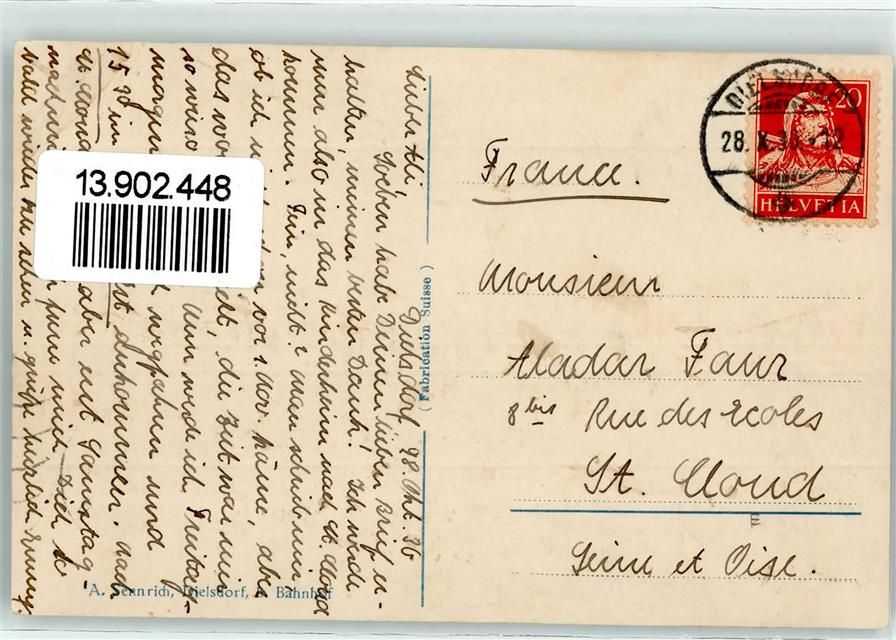 Dielsdorf 28. Okt. 36
Lieber Ali
Soeben habe Deinen lieben Brief er-
halten, meinen besten Dank! Ich werde
nun also in das Kinderheim nach St. Cloud
kommen. Fein, nicht? Man schrieb mir
ob ich nicht schon vor 1. Nov. käme, aber
das
die Zeit war mir
so
Nun werde ich Freitag-
morgen
wegfahren und
15.30 im
Ankommen. Nach
St. Cloud
aber erst Samstag
freue mich Dich so
bald wieder zu sehen u. grüsse herzlich Emmy.
13.902.448
A. Sennrich, Dielsdorf, z. Bahnhof
( Fabrication Suisse )
DIELSDORF
28. X. 36 - 12
20
HELVETIA
France.
Monsieur
Aladar Faur
8 bis Rue des Ecoles
St. Cloud
Seine et Oise.